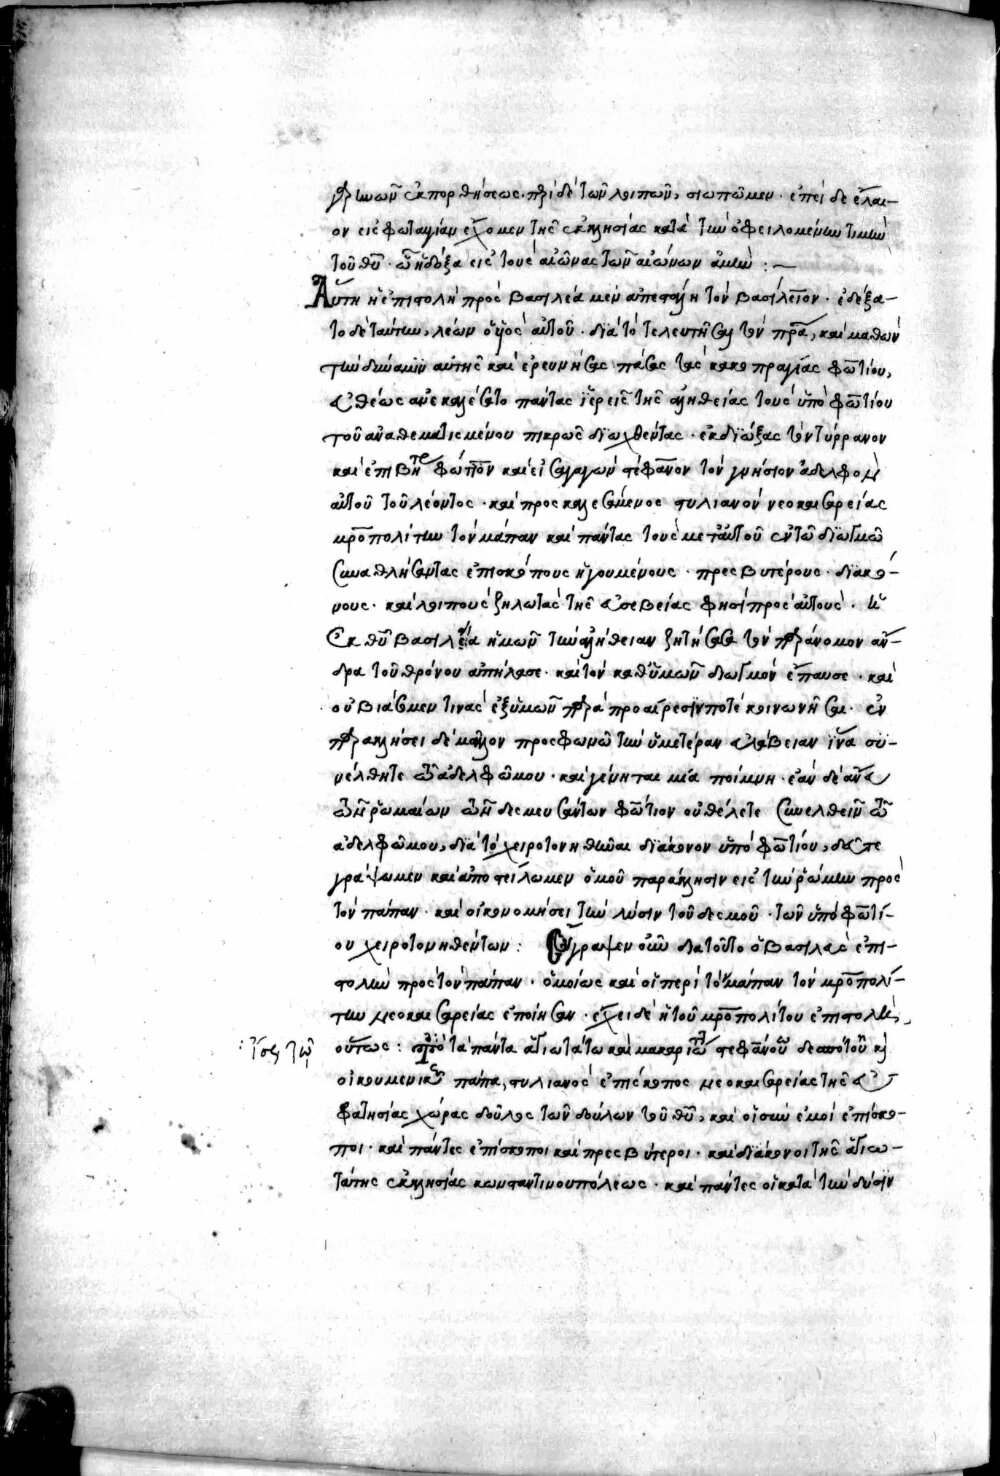 ἐκπορθήσεως· περὶ δὲ τῶν λοιπῶν, σιωπῶμεν· ἐπεὶ δὲ ἔλαι-
ον εἰς φωταγίαν ἔχομεν τῆς ἐκκλησίας κατὰ τῶν ὀφειλομένων τιμὴν
τοῦ θῦ· ὧ ἡ δόξα εἰς τοὺς αἰῶνας τῶν αἰώνων ἀμήν :~
Αὕτη ἡ ἐπιστολὴ πρὸς βασιλέα μὲν ἀπεστάλη τὸν βασίλειον· ἐδέξα-
το δὲ ταύτην, λέων ὁ υἱὸς αὐτοῦ· διὰ τὸ τελευτῆσαι τὸν πρα, καὶ μαθὼν
τὴν δύναμιν αὐτῆς καὶ ἐρευνήσας πάσας τὰς κακοπραγίας φωτίου,
εὐθέως ἀνεκαλέσατο πάντας ἱερεῖς τῆς ἀληθείας τοὺς ὑπὸ φωτίου
τοῦ ἀναθεματισμένου πικρῶς διωχθέντας· ἐκδιώξας τὸν τύρρανον
καὶ ἐπιβήτορ φώτιον καὶ εἰσαγαγὼν στέφανον τὸν γνήσιον ἀδελφὸν
αὐτοῦ τοῦ λέοντος· καὶ προσκαλεσάμενος στυλιανὸν νεοκαισαρείας
μροπολίτην τὸν μάπαν καὶ πάντας τοὺς μετ' αὐτοῦ ἐν τῶ διωγμῶ
συναθλήσαντας ἐπισκόπους ἡγουμένους· πρεσβυτέρους· διακό-
νους· καὶ λοιποὺς ζηλωτὰς τῆς εὐσεβείας φησὶ πρὸς αὐτούς· ἡ
ἐκ θῦ βασιλεία ἡμῶν τὴν ἀλήθειαν ζητήσασα τὸν παράνομον ἄν-
δρα τοῦ θρόνου ἀπήλασε· καὶ τὸν καθ' ὑμῶν διωγμὸν ἔπαυσε· καὶ
οὐ βιάσομεν τινὰς ἐξ ὑμῶν παρὰ προαίρεσίν ποτε κοινωνῆσαι· ἐν
παρακλήσει δὲ μᾶλλον προσφωνῶ τὴν ὑμετέραν εὐλάβειαν ἵνα συ-
νέλθητε τῶ ἀδελφῶ μου· καὶ γένηται μία ποίμνη· ἐὰν δὲ ἄνευ
τῶν ῥωμαίων τῶν δεσμευσάντων φώτιον οὐ θέλετε συνελθεῖν τῶ
ἀδελφῶ μου, διὰ τὸ χειροτονηθῆναι διάκονον ὑπὸ φωτίου, δεῦτε
γράψωμεν καὶ ἀποστείλωμεν ὁμοῦ παράκλησιν εἰς τὴν ῥώμην πρὸς
τὸν πάπαν· καὶ οἰκονομήσει τὴν λύσιν τοῦ δεσμοῦ· τῶν ὑπὸ φωτί-
ου χειροτονηθέντων : Ἔγραψεν οὖν διατοῦτο ὁ βασιλεὺς ἐπι-
στολὴν πρὸς τὸν πάπαν· ὁμοίως καὶ οἱ περὶ τὸν μάπαν τὸν μροπολί-
την νεοκαισαρείας ἐποίησαν· ἔχει δὲ ἡ τοῦ μροπολίτου ἐπιστολὴ,
οὕτως : τῶ τὰ πάντα ἁγιωτάτω καὶ μακαριωτ στεφάνω δεσπότου κὶ
οἰκουμενικῶ πάπα, στυλιανὸς ἐπίσκοπος νεοκαισαρείας τῆς εὐ
φρατησίας χώρας δοῦλος τῶν δούλων τοῦ θῦ, καὶ οἱ σὺν ἐμοὶ ἐπίσκο-
ποι· καὶ πάντες ἐπίσκοποι καὶ πρεσβύτεροι· καὶ διάκονοι τῆς ἁγιω-
τάτης ἐκκλησίας κωνσταντινουπόλεως· καὶ πάντες οἱ κατὰ τὴν δύσιν